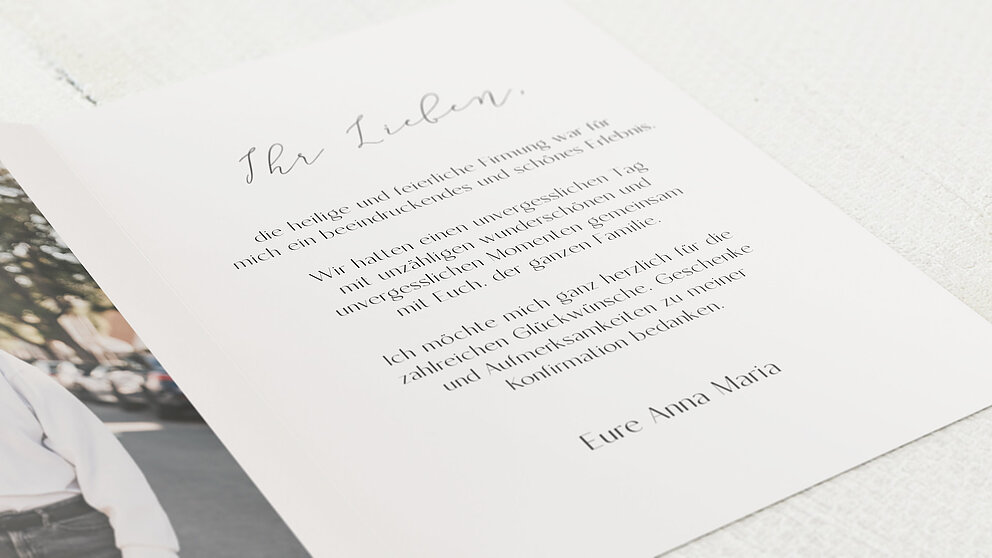 Ihr Lieben,
die heilige und feierliche Firmung war für
mich ein beeindruckendes und schönes Erlebnis.
Wir hatten einen unvergesslichen Tag
mit unzähligen wunderschönen und
unvergesslichen Momenten gemeinsam
mit Euch, der ganzen Familie.
Ich möchte mich ganz herzlich für die
zahlreichen Glückwünsche, Geschenke
und Aufmerksamkeiten zu meiner
Konfirmation bedanken.
Eure Anna Maria